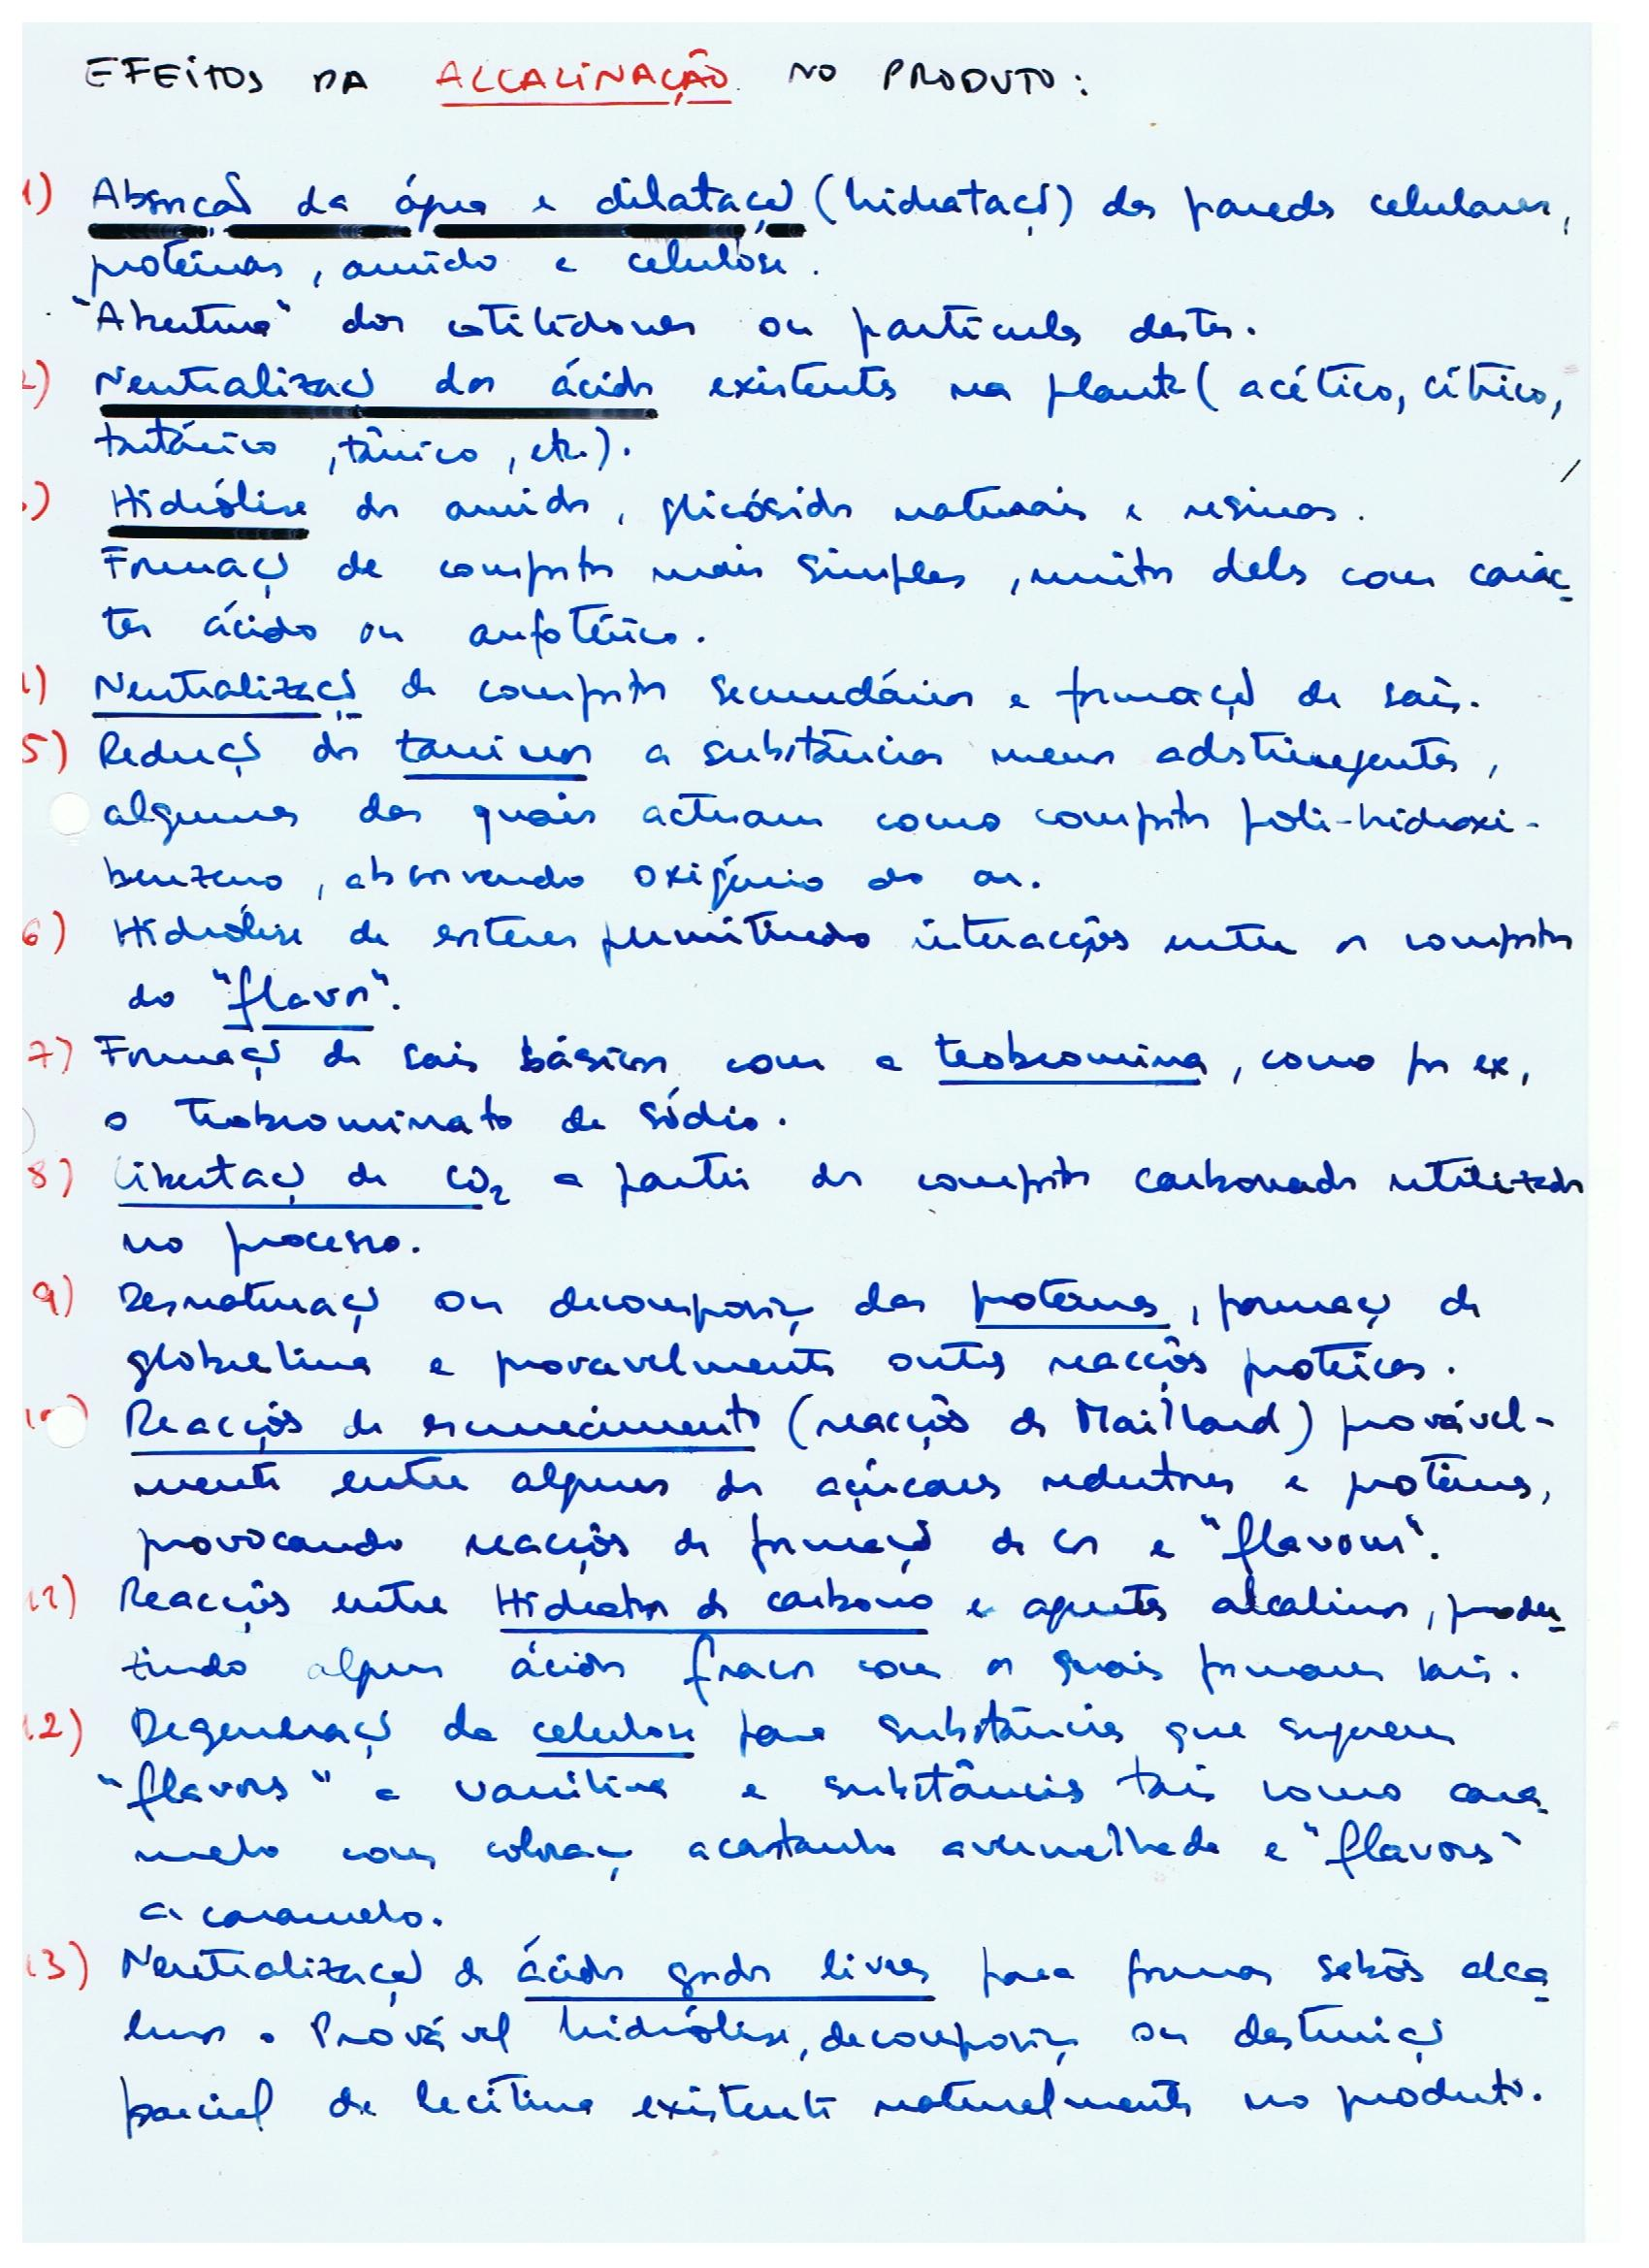 EFEITOS DA ALCALINAÇÃO NO PRODUTO:
1) Absorção da água e dilatação (hidratação) das paredes celulares,
proteínas, amido e celulose.
"Abertura" dos cotilédones ou partículas destes.
2) Neutralização dos ácidos existentes na planta (acético, cítrico,
tartárico, tânico, etc.).
3) Hidrólise do amido, glicósidos naturais e resinas.
Formação de compostos mais simples, muitos deles com carác-
ter ácido ou anfotérico.
4) Neutralização de compostos secundários e formação de sais.
5) Redução dos taninos a substâncias menos adstringentes,
algumas das quais actuam como compostos poli-hidroxi-
benzeno, absorvendo oxigénio do ar.
6) Hidrólise de esteres permitindo interacções entre os compostos
do "flavor".
7) Formação de sais básicos com a teobromina, como por ex,
o teobrominato de sódio.
8) Libertação de CO2 a partir dos compostos carbonados utilizados
no processo.
9) Desnaturação ou decomposição das proteínas, formação de
globulina e provavelmente outras reacções proteicas.
10) Reacções de escurecimento (reacções de Maillard) provável-
mente entre alguns dos açúcares redutores e proteínas,
provocando reacções de formação de cor e "flavours".
11) Reacções entre Hidratos de carbono e agentes alcalinos, produ
zindo alguns ácidos fracos com os quais formam sais.
12) Degeneração da celulose para substâncias que sugerem
"flavors" a vanilina e substâncias tais como cara
melo com coloração acastanha avermelhada e "flavors"
a caramelo.
13) Neutralização de ácidos gordos livres para formar sabões alca
linos. Provável hidrólise, decomposição ou destruição
parcial da lecitina existente naturalmente no produto.